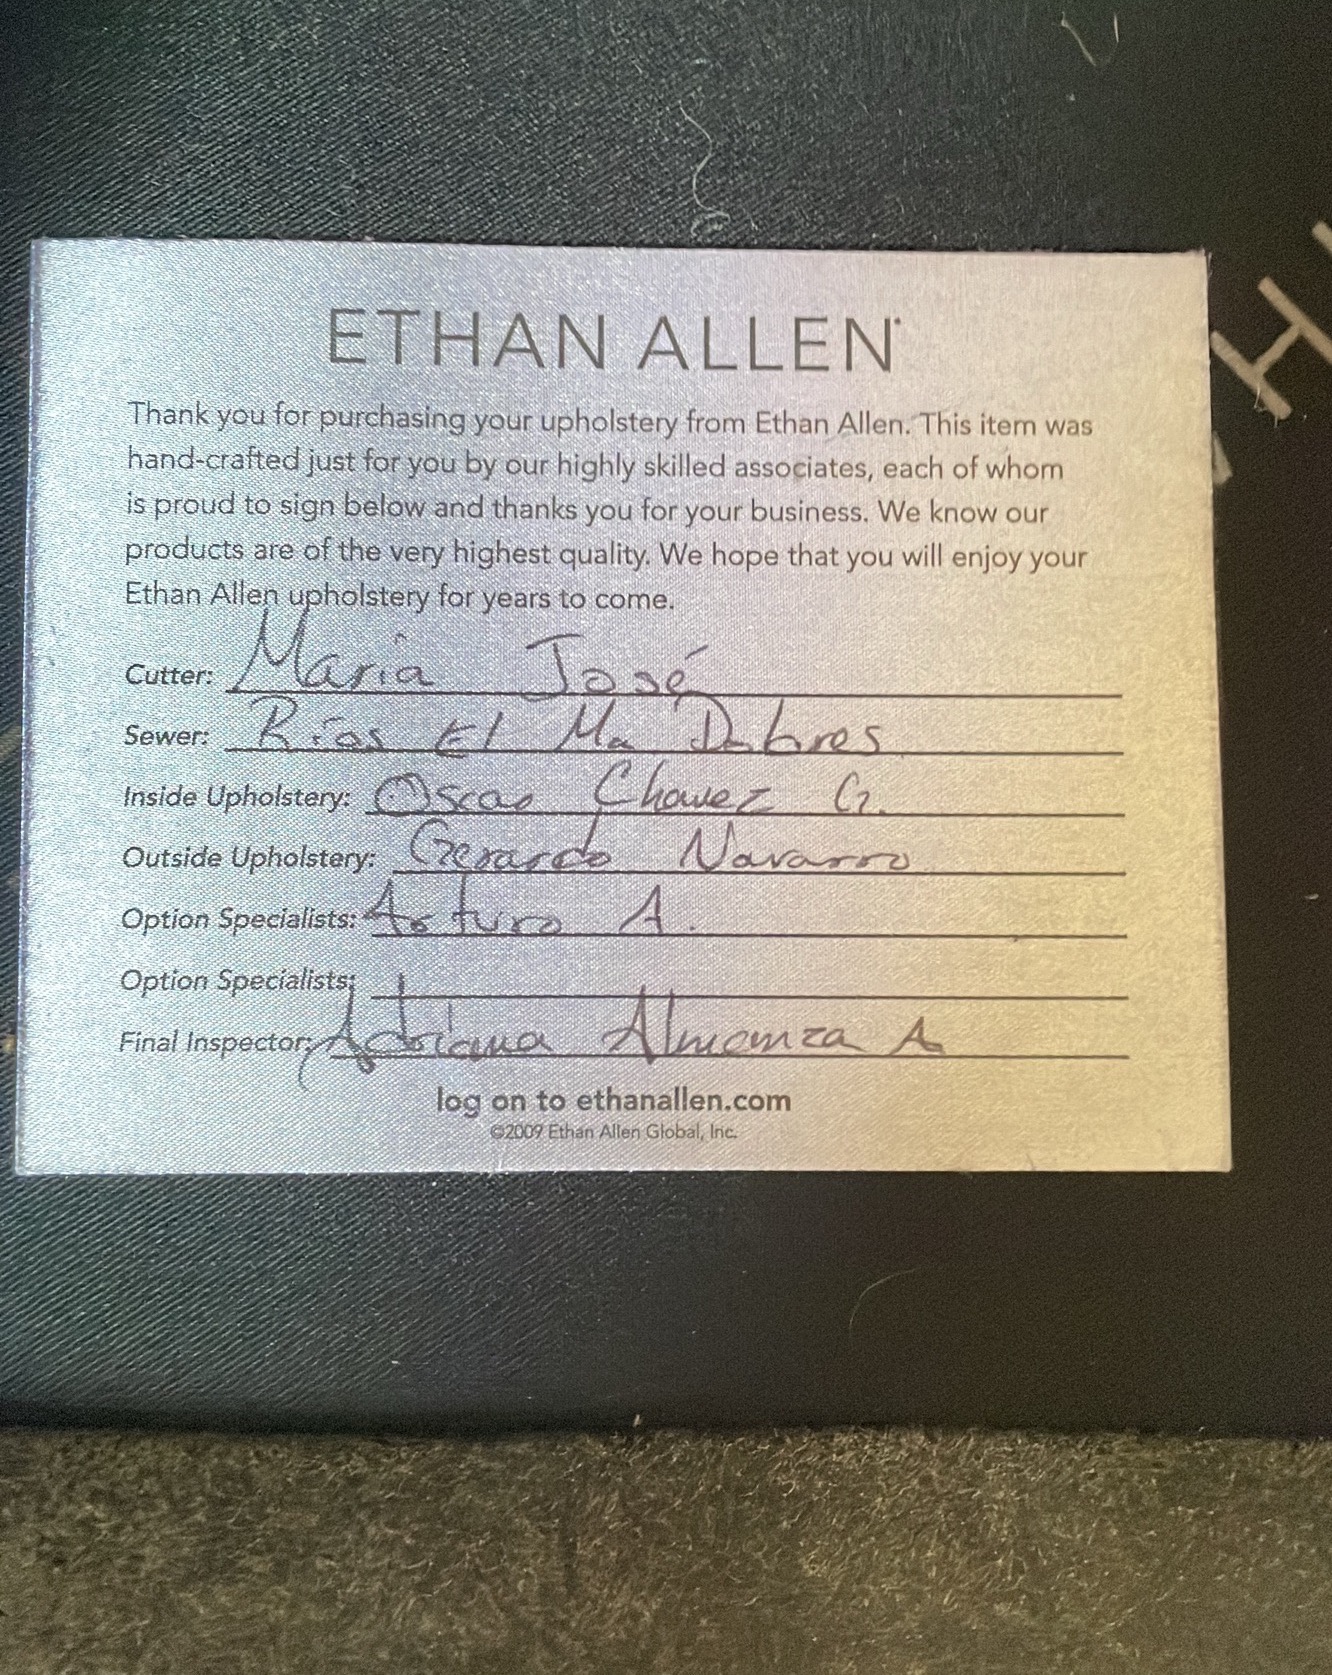 ETHAN ALLEN
Thank you for purchasing your upholstery from Ethan Allen. This item was
hand-crafted just for you by our highly skilled associates, each of whom
is proud to sign below and thanks you for your business. We know our
products are of the very highest quality. We hope that you will enjoy your
Ethan Allen upholstery for years to come.
Cutter: Maria José
Sewer: Ríos El Ma Dolores
Inside Upholstery: Oscar Chavez G.
Outside Upholstery: Gerardo Navarro
Option Specialists: Arturo A.
Option Specialists:
Final Inspector: Adriana Almanza A
log on to ethanallen.com
©2009 Ethan Allen Global, Inc.
H